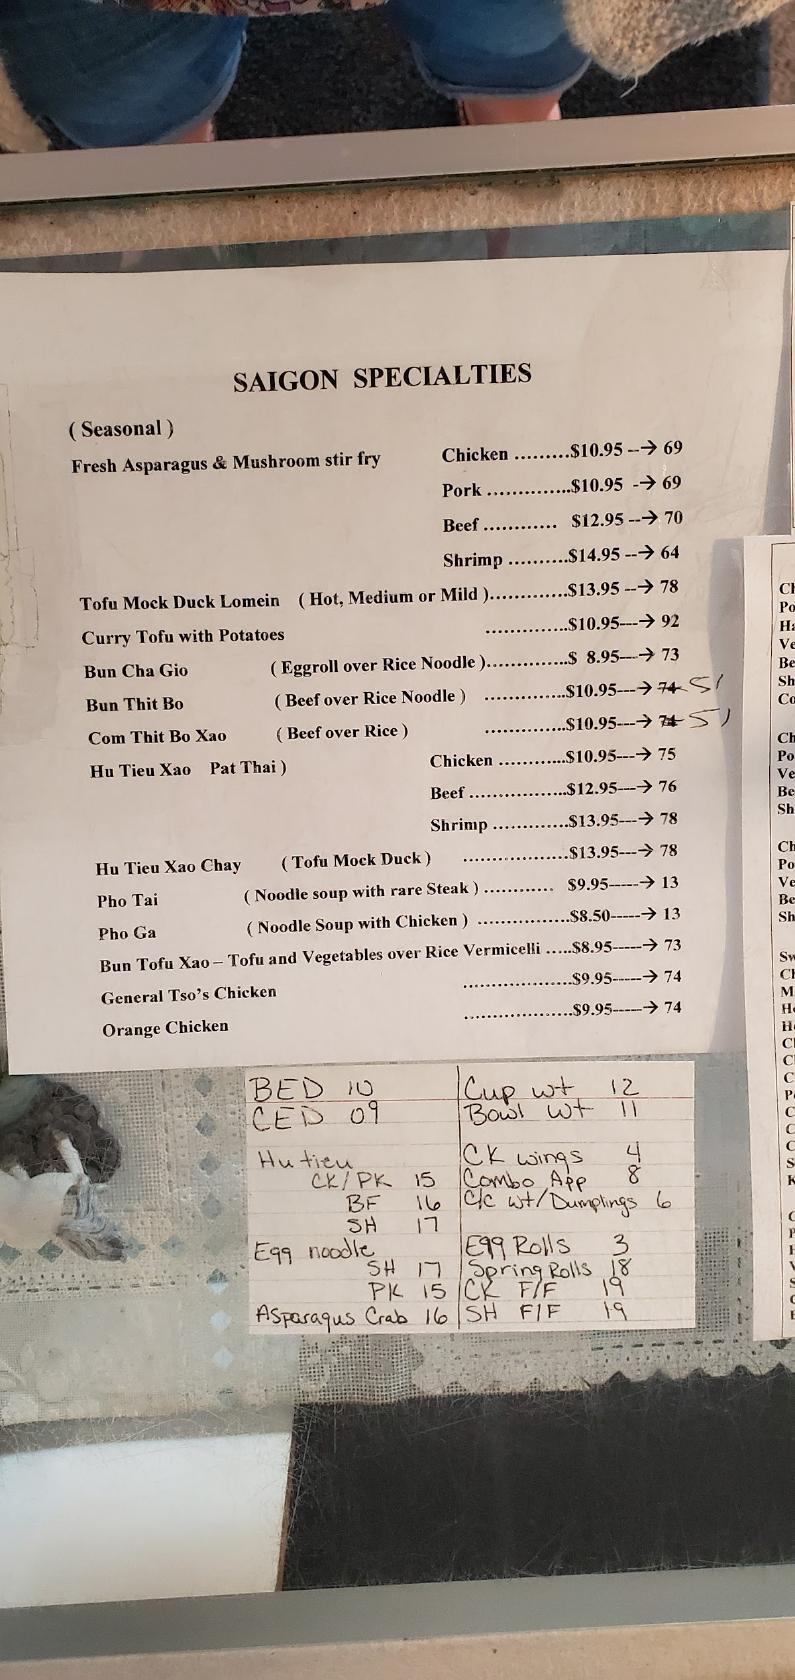 SAIGON SPECIALTIES
( Seasonal )
Fresh Asparagus & Mushroom stir fry Chicken .........$10.95 --→ 69
Pork ..............$10.95 -→ 69
Beef ............ $12.95 --→ 70
Shrimp ..........$14.95 --→ 64
Tofu Mock Duck Lomein ( Hot, Medium or Mild ).............$13.95 --→ 78
Curry Tofu with Potatoes .............$10.95---→ 92
Bun Cha Gio ( Eggroll over Rice Noodle )..............$ 8.95---→ 73
Bun Thit Bo ( Beef over Rice Noodle ) .............$10.95---→ 74 51
Com Thit Bo Xao ( Beef over Rice ) .............$10.95---→ 74 51
Hu Tieu Xao Pat Thai ) Chicken ...........$10.95---→ 75
Beef ................$12.95---→ 76
Shrimp .............$13.95---→ 78
Hu Tieu Xao Chay ( Tofu Mock Duck ) .................$13.95---→ 78
Pho Tai ( Noodle soup with rare Steak ) ........... $9.95-----→ 13
Pho Ga ( Noodle Soup with Chicken ) ...............$8.50-----→ 13
Bun Tofu Xao – Tofu and Vegetables over Rice Vermicelli .....$8.95-----→ 73
General Tso's Chicken .................$9.95-----→ 74
Orange Chicken .................$9.95-----→ 74
BED 10
CED 09
Hu tieu
CK/PK 15
BF 16
SH 17
Egg noodle
SH 17
PK 15
Asparagus Crab 16
Cup wt 12
Bowl wt 11
CK wings 4
Combo App 8
C/C wt/Dumplings 6
Egg Rolls 3
Spring Rolls 18
CK F/F 19
SH F/F 19